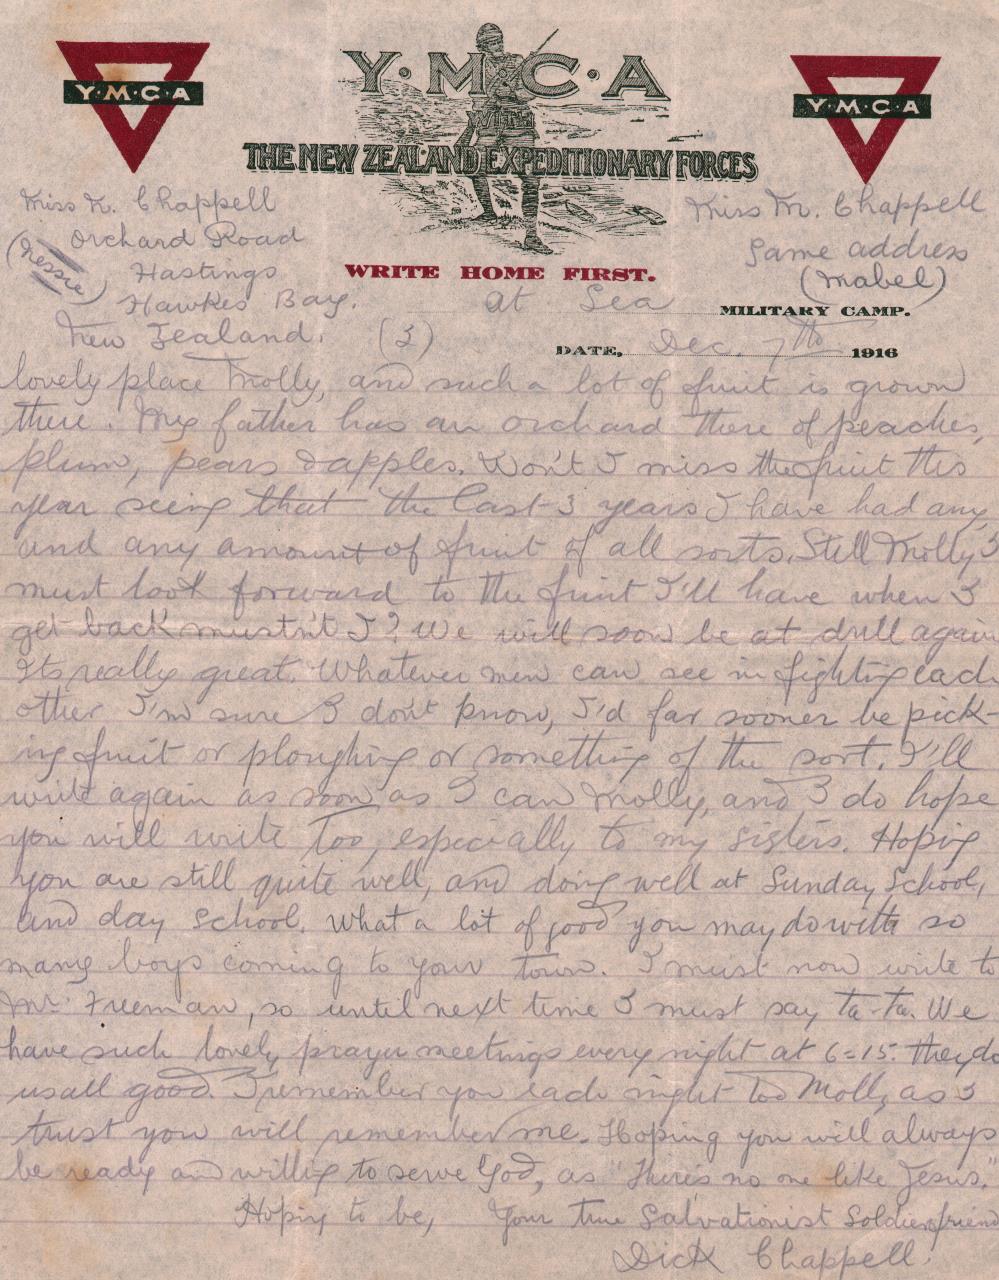 Y·M·C·A
Y·M·C·A
Y·M·C·A
WITH
THE NEW ZEALAND EXPEDITIONARY FORCES
Miss N. Chappell
Orchard Road
(Nessie)
Hastings
Hawkes Bay.
New Zealand.
Miss M. Chappell
Same address
(Mabel)
WRITE HOME FIRST.
At Sea MILITARY CAMP.
(3)
DATE, Dec. 7th 1916
lovely place Molly, and such a lot of fruit is grown
there. My father has an orchard there of peaches,
plum, pears & apples. Won't I miss the fruit this
year seeing that the last 3 years I have had any,
and any amount of fruit of all sorts. Still Molly I
must look forward to the fruit I'll have when I
get back mustn't I? We will soon be at drill again
Its really great. Whatever men can see in fighting each
other I'm sure I don't know, I'd far sooner be pick-
ing fruit or ploughing or something of the sort. I'll
write again as soon as I can Molly, and I do hope
you will write too, especially to my sisters. Hoping
you are still quite well, and doing well at Sunday School,
and day school. What a lot of good you may do with so
many boys coming to your town. I must now write to
Mr. Freeman, so until next time I must say ta-ta. We
have such lovely prayer meetings every night at 6=15. they do
us all good. I remember you each night too Molly as I
trust you will remember me. Hoping you will always
be ready and willing to serve God, as "There's no one like Jesus."
Hoping to be, Your true Salvationist Soldier friend
Dick Chappell.